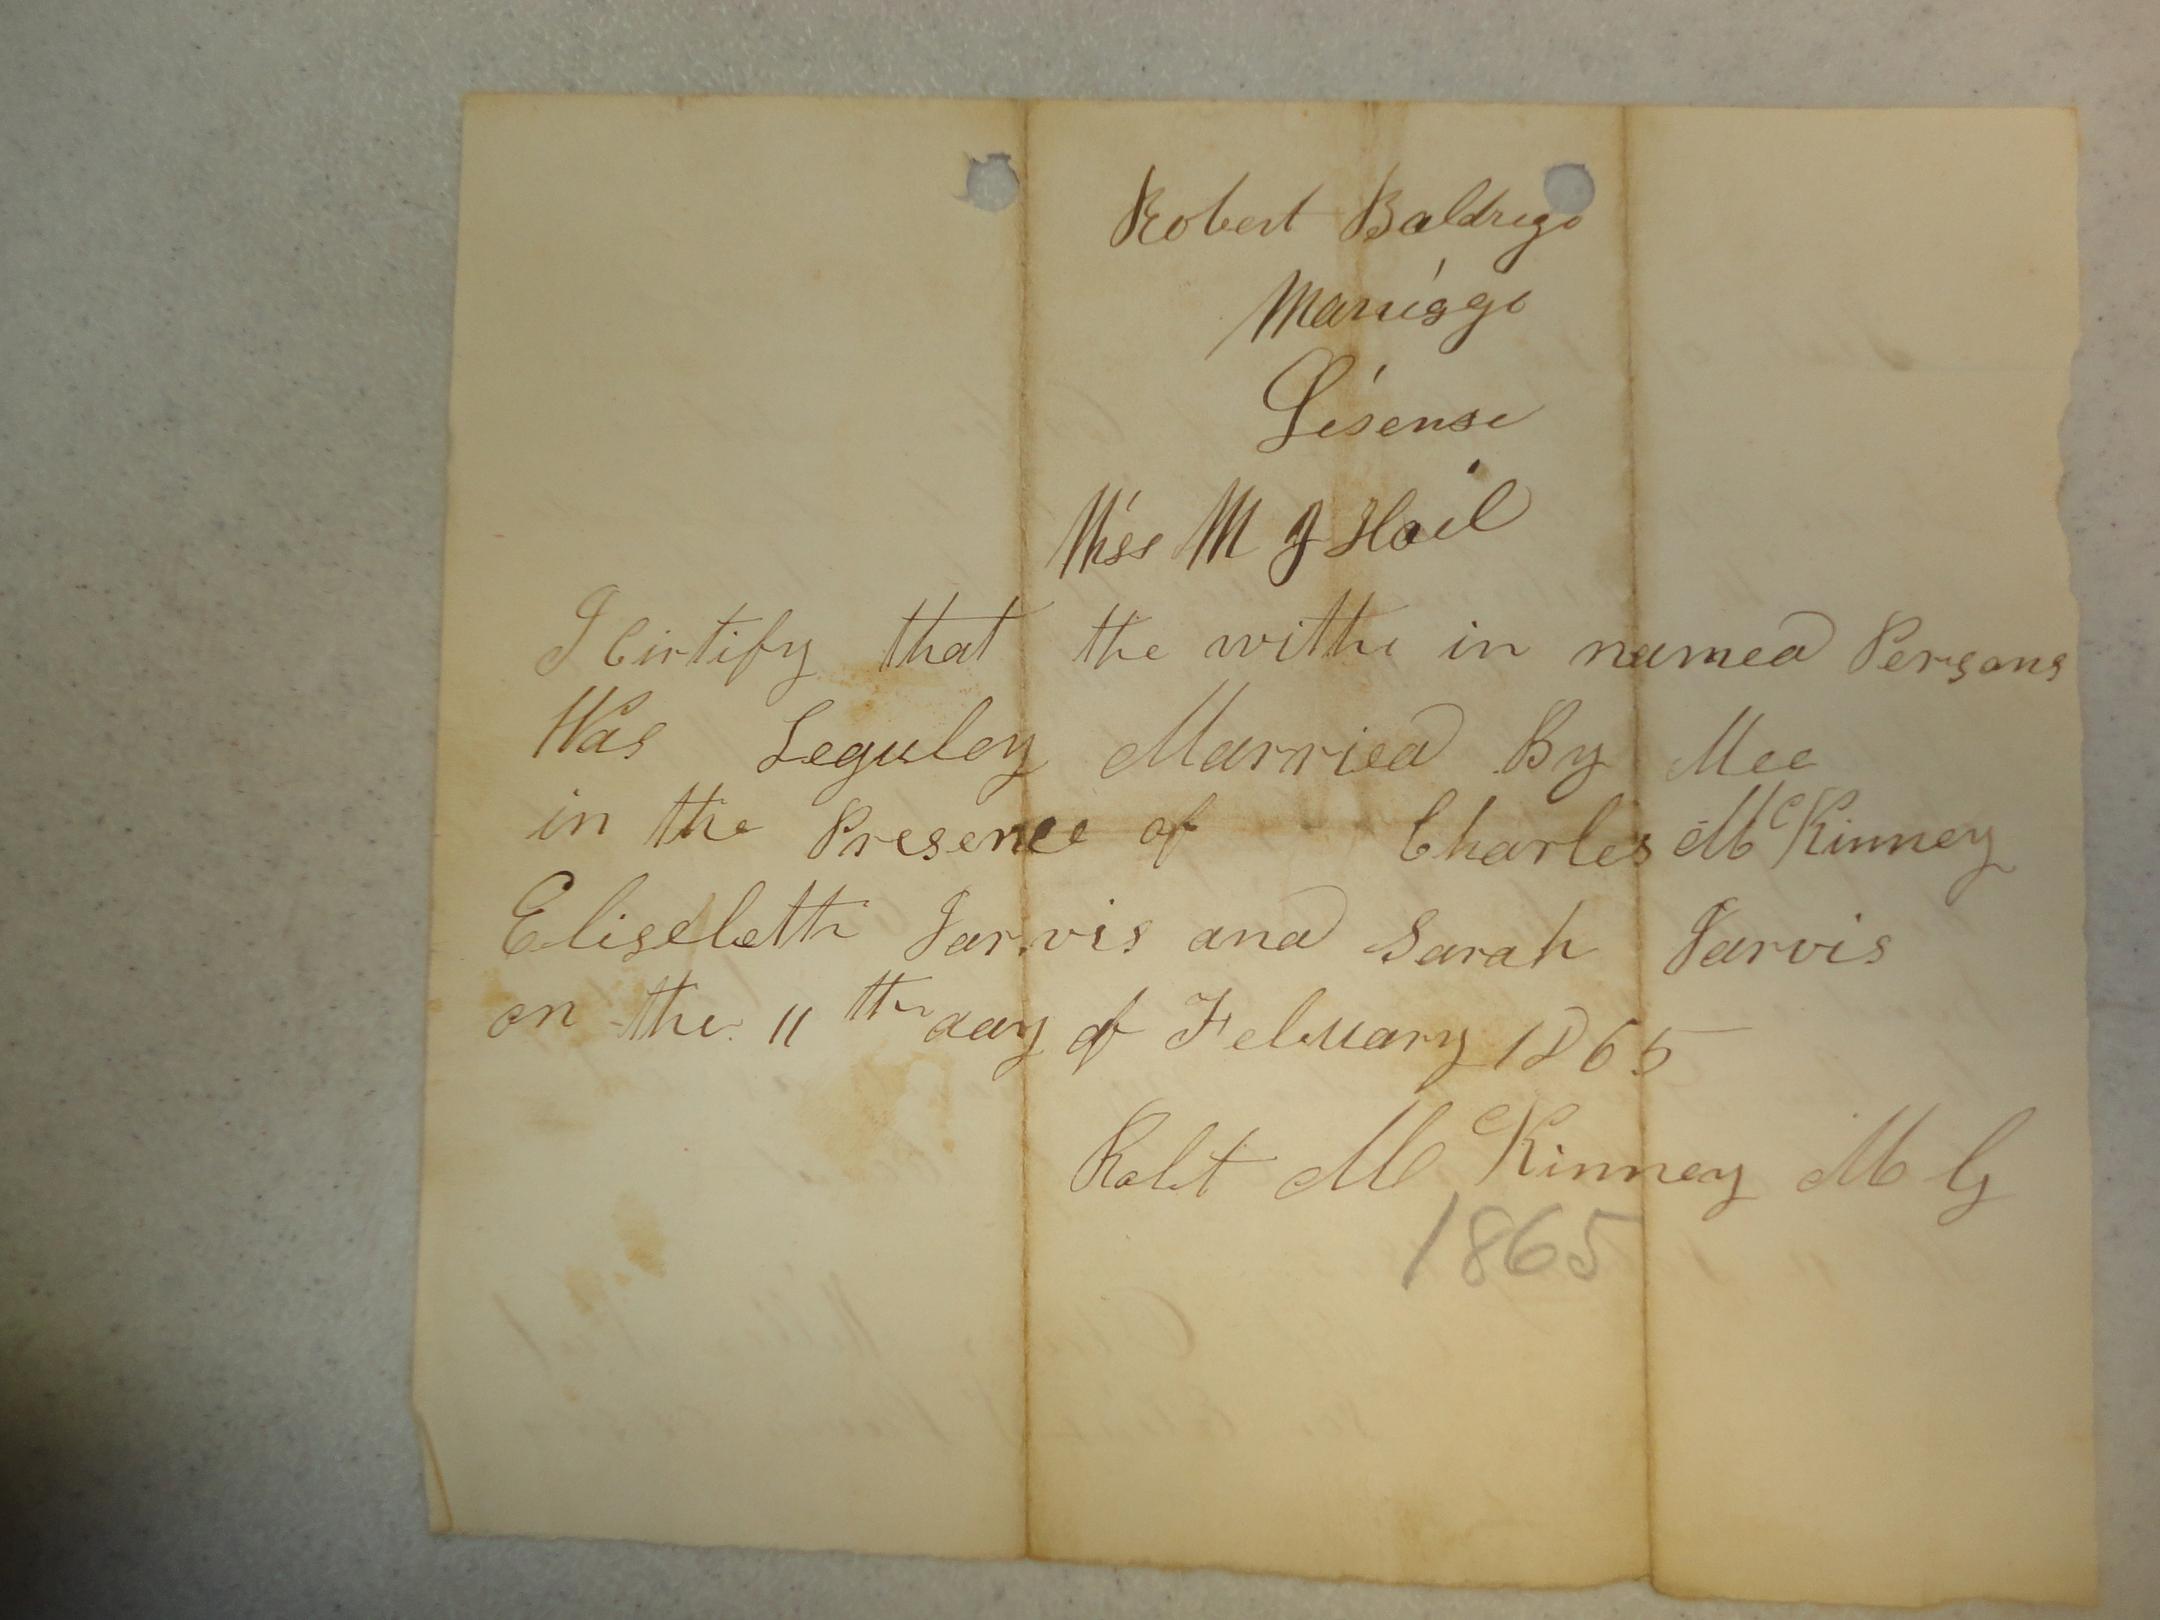 Robert Baldrige
Marriage
Lisense
Miss M J Hail
I Cirtify that the withe in named Persons
Was Leguley Married By Mee
in the Presence of Charles McKinney
Elisebeth Jarvis and Sarah Jarvis
on the 11th day of February 1865
Robt McKinney M G
1865